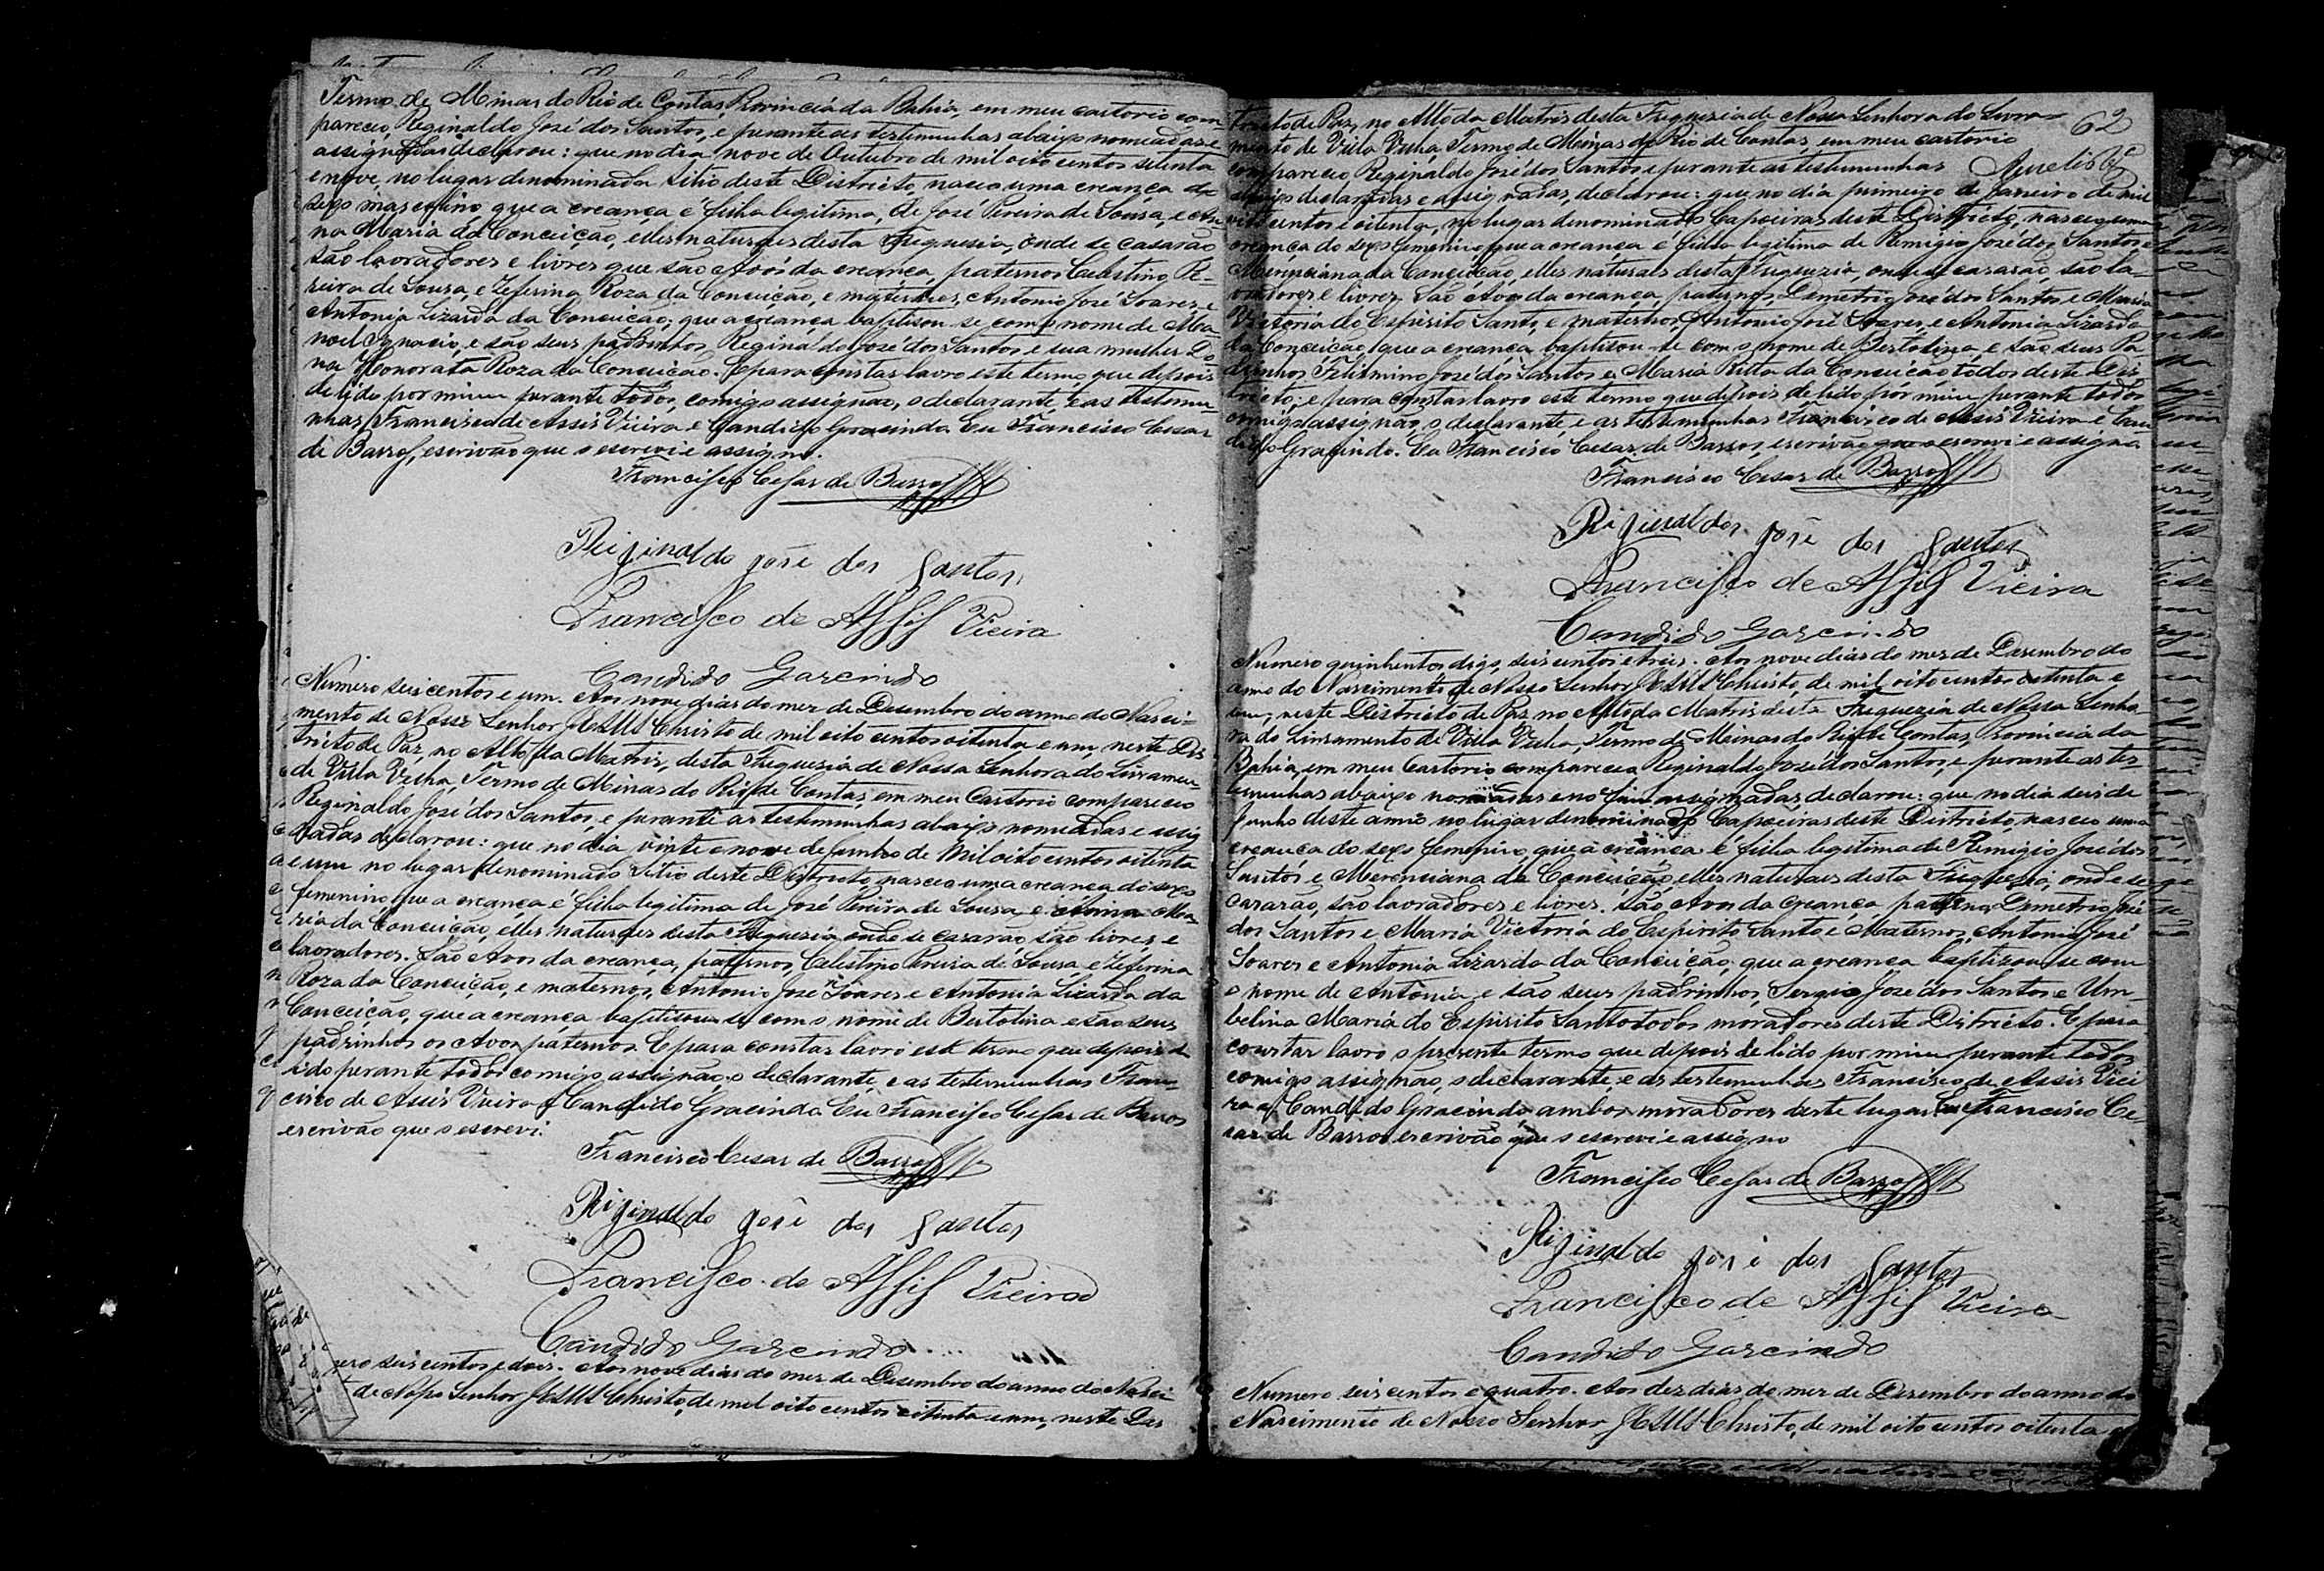 Termo de Minas do Rio de Contas, Provincia da Bahia, em meu cartorio com-
pareceo, Reginaldo José dos Santos, e perante as testemunhas abaixo nomeadas e
assignadas declarou: que no dia nove de Outubro de mil oito centos setenta
e nove, no lugar denominado Sitio deste Districto, nasceo uma creança do
sexo masculino, que a creança é filha legitima, de José Pereira de Sousa, e An-
na Maria da Conceição, elles naturaes desta Freguesia, onde se casarão
são lavradores e livres que são Avós da creança, paternos Celestino Pe-
reira de Sousa, e Zeferina Roza da Conceição, e maternos, Antonio José Soares, e
Antonia Lizarda da Conceição; que a creança baptisou-se com o nome de Ma
noel Ignacio, e são seus padrinhos Reginaldo José dos Santos e sua mulher Do
na Honorata Roza da Conceição. E para constar lavro este termo, que depois
de lido por mim perante todos, comigo assignão, o declarante, e as testemu-
nhas, Francisco de Assis Vieira e Candido Gracindo. Eu Francisco Cesar
de Barros, escrivão que o escrevi e assigno.
Francisco Cesar de Barros
Riginaldo José dos Santos
Francisco de Assis Vieira
Candido Garcindo
Numero seis centos e um. Aos nove dias do mez de Desembro do anno do Nasci-
mento de Nosso Senhor JESUS Christo de mil oito centos oitenta e um, neste Dis
tricto de Paz, no Alto da Matriz, desta Freguesia de Nossa Senhora do Livramen-
de Villa Velha, Termo de Minas do Rio de Contas, em meu Cartorio compareceo
Reginaldo José dos Santos, e perante as testemunhas abaixo nomeadas e assig
nadas declarou: que no dia vinte e nove de Junho de Mil oito centos oitenta
e um no lugar denominado Sitio deste Districto, nasceo uma creança do sexo
femenino, que a creança é filha legitima de José Pereira de Sousa, e Anna Ma-
ria da Conceição, elles naturaes desta Freguezia onde se casarão são livres e
lavradores. São Avos da creança, paternos, Celestino Pereira de Sousa e Zeferina
Roza da Conceição, e maternos, Antonio José Soares e Antonia Lizarda da
Conceição, que a creança baptisou se com o nome de Bertolina e são seus
padrinhos os Avos paternos. E para constar lavro este termo que depois de
lido perante todos comigo assignão, o declarante, e as testemunhas Fran-
cisco de Assis Vieira e Candido Gracindo. Eu Francisco Cesar de Barros
escrivão que o escrevi.
Francisco Cesar de Barros
Riginaldo José dos Santos
Francisco de Assis Vieira
Candido Garcindo
mero seis centos e dois. Aos nove dias do mez de Desembro do anno do Nasci
de Nosso Senhor JESUS Christo, de mil oito centos oitenta e um, neste Dis
62
tricto de Paz, no Alto da Matriz desta Freguezia de Nossa Senhora do Livra-
mento de Villa Velha, Termo de Minas do Rio de Contas, em meu cartorio
compareceo Reginaldo José dos Santos e perante as testemunhas
abaixo declaradas e assignadas, declarou: que no dia primeiro de Janeiro de mil
oito centos e oitenta, no lugar denominado Capoeiras deste Districto, nasceo uma
creança do sexo femenino, que a creança é filha legitima de Remigio José dos Santos, e
Merenciana da Conceição, elles naturaes desta Freguezia, onde se casarão, são la-
vradores e livres. São Avos da creança, paternos, Demetrio José dos Santos e Maria
Victoria do Espirito Santo, e maternos, Antonio José Soares, e Antonia Lizarda
da Conceição, que a creança baptisou-se com o nome de Bertolina, e são seus Pa-
drinhos Felismino José dos Santos e Maria Ritta da Conceição, todos deste Dis
tricto; e para constar lavro este termo que depois de lido por mim perante todos
comigo assignão, o declarante, e as testemunhas Francisco de Assis Vieira e Can
dido Gracindo. Eu Francisco Cesar de Barros, escrivão que o escrevi e assigno
Francisco Cesar de Barros
Riginaldo José dos Santos
Francisco de Assis Vieira
Candido Garcindo
Numero quinhentos digo, seis centos e tres. Aos nove dias do mes de Desembro do
anno do Nascimento de Nosso Senhor JESUS Christo, de mil oito centos oitenta e
um, neste Districto de Paz no Alto da Matriz desta Freguezia de Nossa Senho-
ra do Livramento de Villa Velha, Termo de Minas do Rio de Contas, Provincia da
Bahia, em meu Cartorio compareceo Reginaldo José dos Santos, e perante as tes-
temunhas abaixo nomeadas e no fim assignadas, declarou: que no dia seis de
Junho deste anno no lugar denominado Capoeiras deste Districto, nasceo uma
creança do sexo femenino, que a creança é filha legitima de Remigio José dos
Santos e Merenciana da Conceição, elles naturaes desta Freguezia, onde se
casarão, são lavradores e livres. São Avos da creança, paternos, Demetrio José
dos Santos e Maria Victoria do Espirito Santo e Maternos, Antonio José
Soares e Antonia Lizarda da Conceição, que a creança baptizou-se com
o nome de Antonia, e são seus padrinhos, Sergio José dos Santos e Um-
belina Maria do Espirito Santo todos moradores deste Districto. E para
constar lavro o presente termo que depois de lido por mim perante todos
comigo assignão, o declarante, e as testemunhas Francisco de Assis Viei
ra e Candido Gracindo ambos moradores deste lugar. Eu Francisco Ce-
sar de Barros escrivão que o escrevi e assigno
Francisco Cesar de Barros
Riginaldo José dos Santos
Francisco de Assis Vieira
Candido Garcindo
Numero seis centos e quatro. Aos dez dias do mez de Dezembro do anno do
Nascimento de Nosso Senhor JESUS Christo, de mil oito centos oitenta e